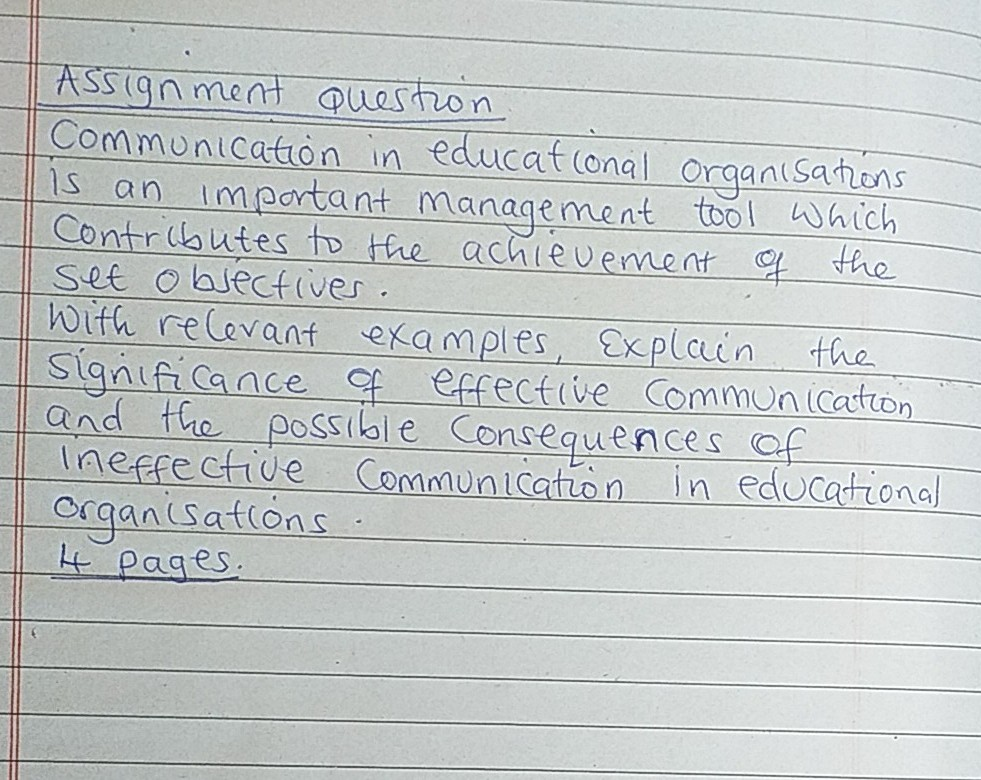 Assignment question
Communication in educational organisations
is an important management tool which
Contributes to the achievement of the
set objectives.
With relevant examples, Explain the
significance of effective Communication
and the possible Consequences of
ineffective Communication in educational
organisations.
4 pages.